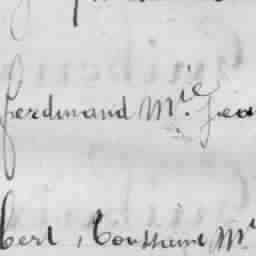 ferdinand M.ie Jean
bert, Toussaint M.ie